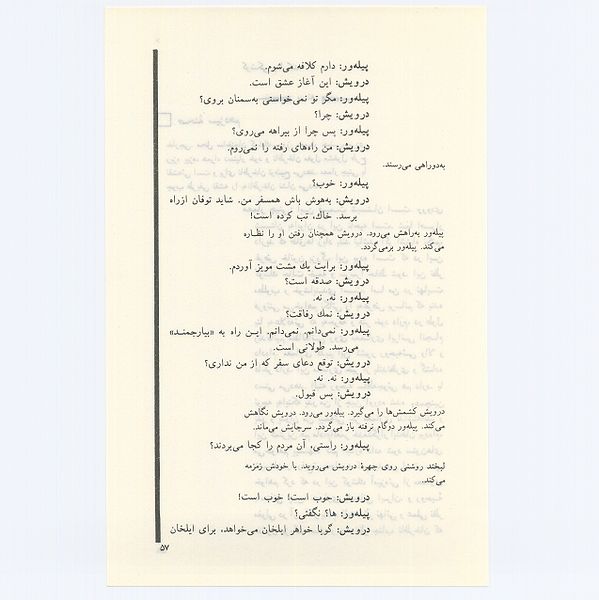 پیله‌ور: دارم کلافه می‌شوم.
درویش: این آغاز عشق است.
پیله‌ور: مگر تو نمی‌خواستی به‌سمنان بروی؟
درویش: چرا؟
پیله‌ور: پس چرا از بیراهه می‌روی؟
درویش: من راه‌های رفته را نمی‌روم.
به‌دوراهی می‌رسند.
پیله‌ور: خوب؟
درویش: به‌هوش باش همسفر من. شاید توفان ازراه
برسد. خاك، تب کرده است!
پیله‌ور به‌راهش می‌رود. درویش همچنان رفتن او را نظاره
می‌کند. پیله‌ور برمی‌گردد.
پیله‌ور: برایت یك مشت مویز آوردم.
درویش: صدقه است؟
پیله‌ور: نه. نه.
درویش: نمك رفاقت؟
پیله‌ور: نمی‌دانم. نمی‌دانم. ایـن راه به «بیارجمنـد»
می‌رسد. طولانی است.
درویش: توقع دعای سفر که از من نداری؟
پیله‌ور: نه. نه.
درویش: پس قبول.
درویش کشمش‌ها را می‌گیرد. پیله‌ور می‌رود. درویش نگاهش
می‌کند. پیله‌ور دوگام نرفته باز می‌گردد. سرجایش می‌ماند.
پیله‌ور: راستی، آن مردم را کجا می‌بردند؟
لبخند روشنی روی چهرهٔ درویش می‌روید. با خودش زمزمه
می‌کند.
درویش: خوب است! خوب است!
پیله‌ور: ها؟ نگفتی؟
درویش: گویا خواهر ایلخان می‌خواهد، برای ایلخان
۵۷